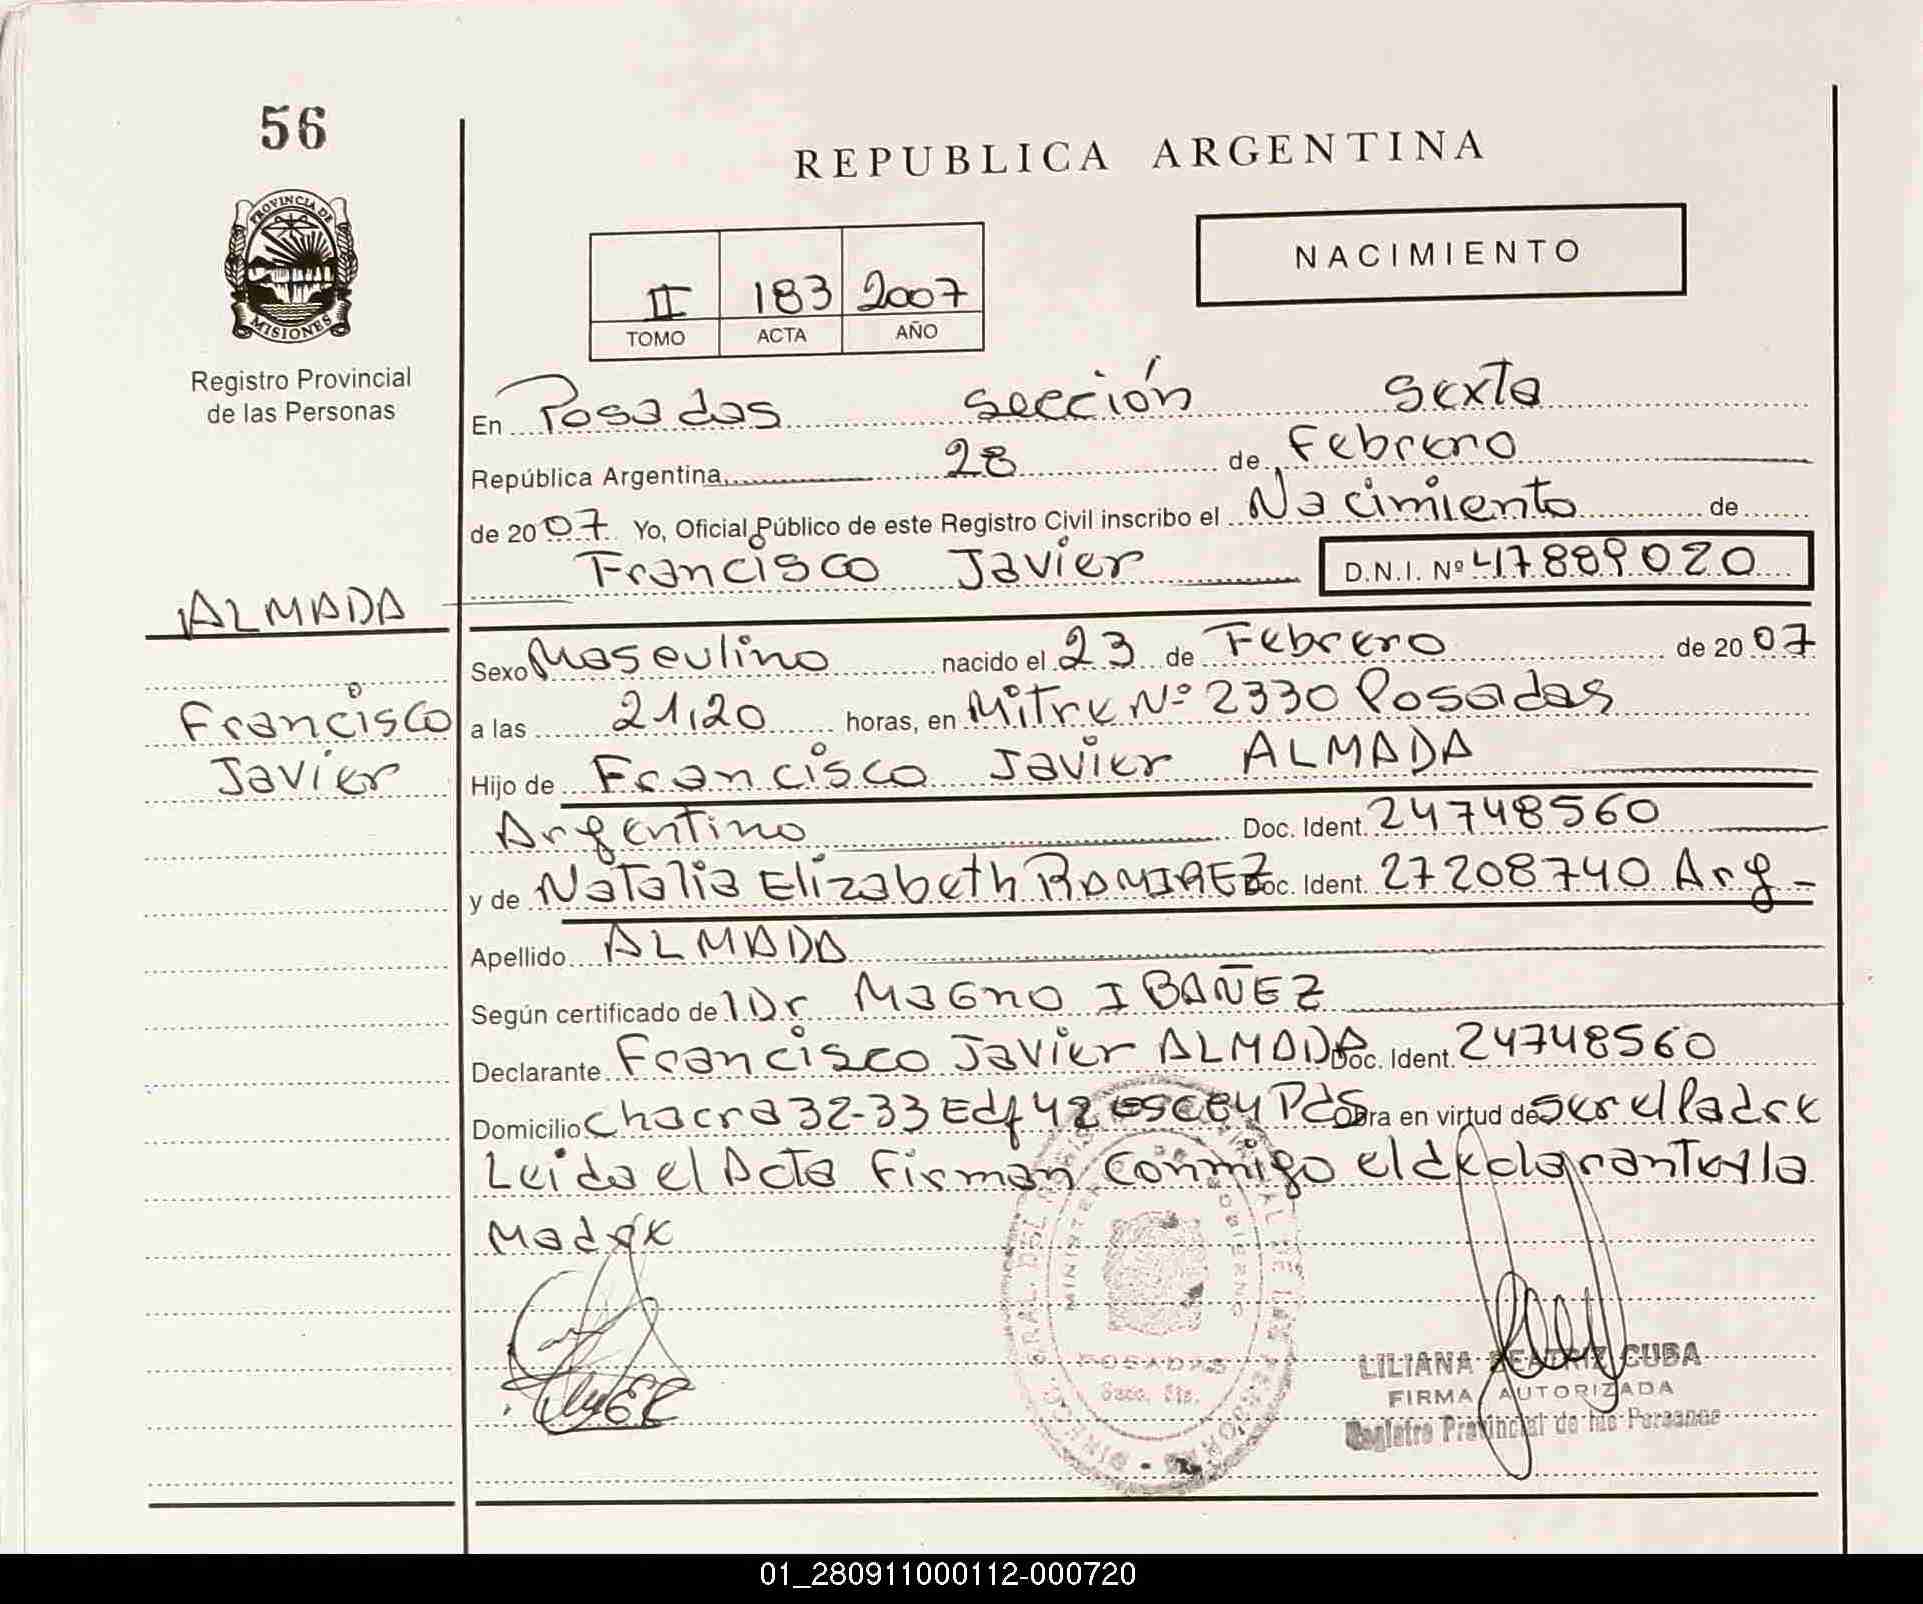 56
REPUBLICA ARGENTINA
PROVINCIA DE
MISIONES
NACIMIENTO
II 183 2007
TOMO ACTA AÑO
Registro Provincial
de las Personas
En Posadas sección sexta
República Argentina, 28 de Febrero
de 2007 Yo, Oficial Público de este Registro Civil inscribo el Nacimiento de
Francisco Javier D.N.I. Nº 47889020
ALMADA
Sexo Masculino nacido el 23 de Febrero de 2007
Francisco
a las 21,20 horas, en Mitre Nº 2330 Posadas
Javier
Hijo de Francisco Javier ALMADA
Argentino Doc. Ident. 24748560
y de Natalia Elizabeth RAMIREZ Doc. Ident. 27208740 Arg
Apellido ALMADA
Según certificado de l Dr Magno IBAÑEZ
Declarante Francisco Javier ALMADA Doc. Ident. 24748560
Domicilio Chacra 32-33 Edf 42 Pds Obra en virtud de ser el Padre
Leida el Acta Firman conmigo el declarante y la
Madre
MINISTERIO DE GOBIERNO
POSADAS
LILIANA BEATRIZ CUBA
FIRMA AUTORIZADA
Registro Provincial de las Personas
01_280911000112-000720